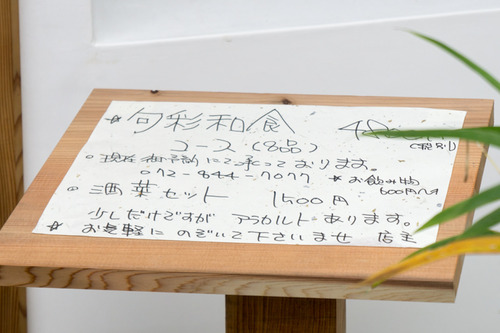 ☆ 旬彩和食
コース(8品) (税別)
○ 現在御予約にて承っております。
072-844-7077 ☆お飲み物
○ 酒菜セット 1500円 600円〜
少しだけですが アラカルトあります。
☆ お気軽に のぞいて下さいませ 店主